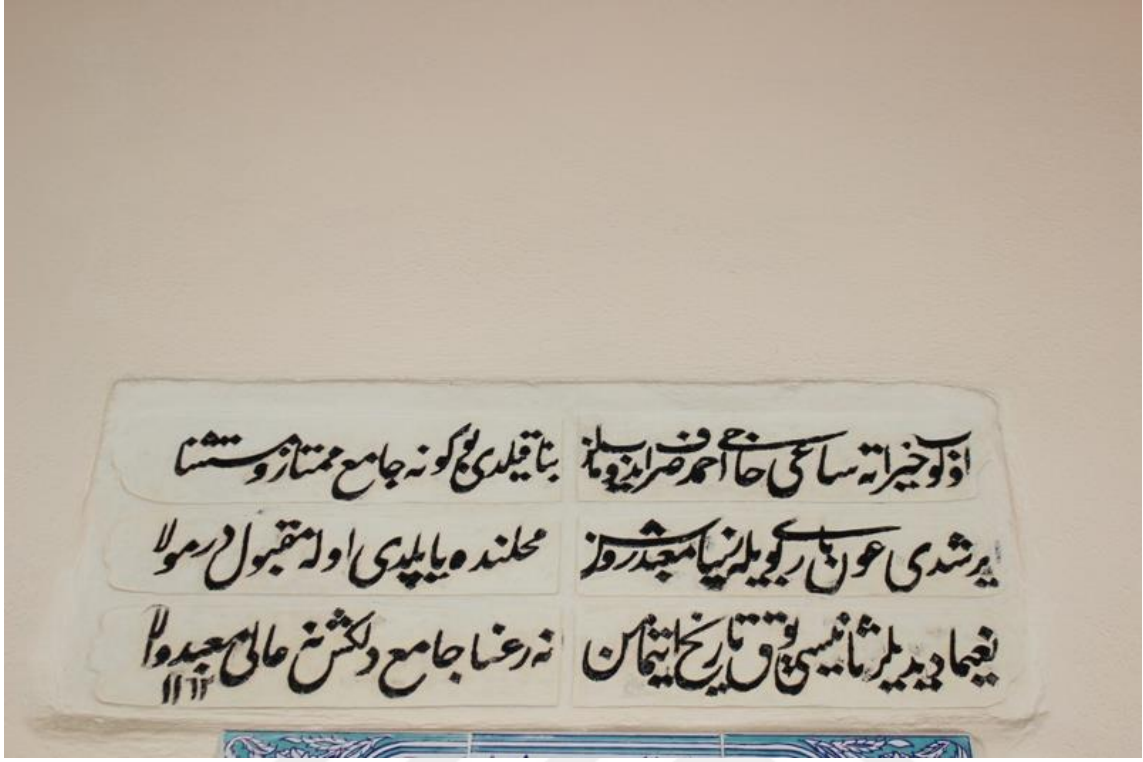 اولوب خيراته ساعى حاجى احمد صرف ايدوب مالن
بنا قيلدى بو كونه جامع ممتاز و مستثنا
يرشدى عون بارى بويله زيبا معبد
محلنده يابلدى اوله مقبول در مولا
نعيما ديديلر ثانيسى يوق تاريخ اتمامن
نه رعنا جامع دلكش نه عالى معبد والا
١١٦٢